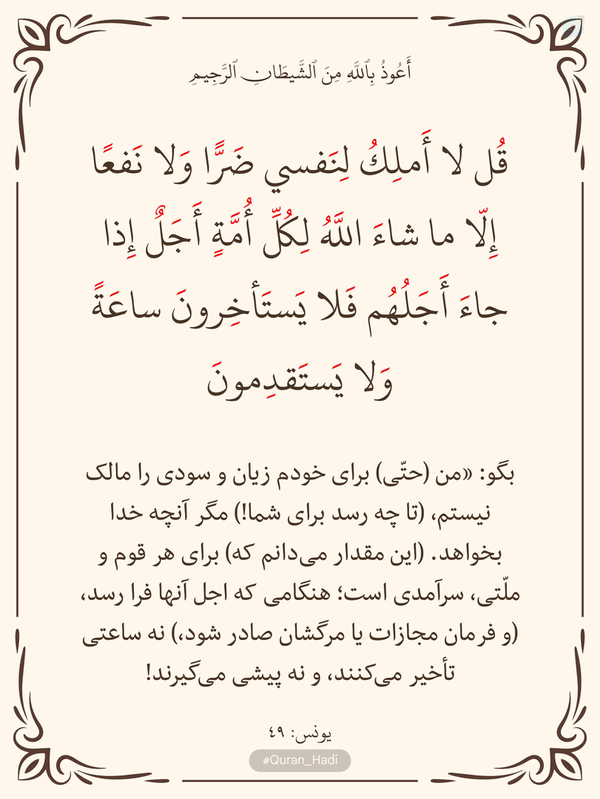 أَعُوذُ بِٱللَّهِ مِنَ ٱلشَّيطَانِ ٱلرَّجِيمِ
قُل لا أَملِكُ لِنَفسي ضَرًّا وَلا نَفعًا
إِلّا ما شاءَ اللَّهُ لِكُلِّ أُمَّةٍ أَجَلٌ إِذا
جاءَ أَجَلُهُم فَلا يَستَأخِرونَ ساعَةً
وَلا يَستَقدِمونَ
بگو: «من (حتّی) برای خودم زیان و سودی را مالک
نیستم، (تا چه رسد برای شما!) مگر آنچه خدا
بخواهد. (این مقدار می‌دانم که) برای هر قوم و
ملّتی، سرآمدی است؛ هنگامی که اجل آنها فرا رسد،
(و فرمان مجازات یا مرگشان صادر شود،) نه ساعتی
تأخیر می‌کنند، و نه پیشی می‌گیرند!
یونس: ٤٩
#Quran_Hadi